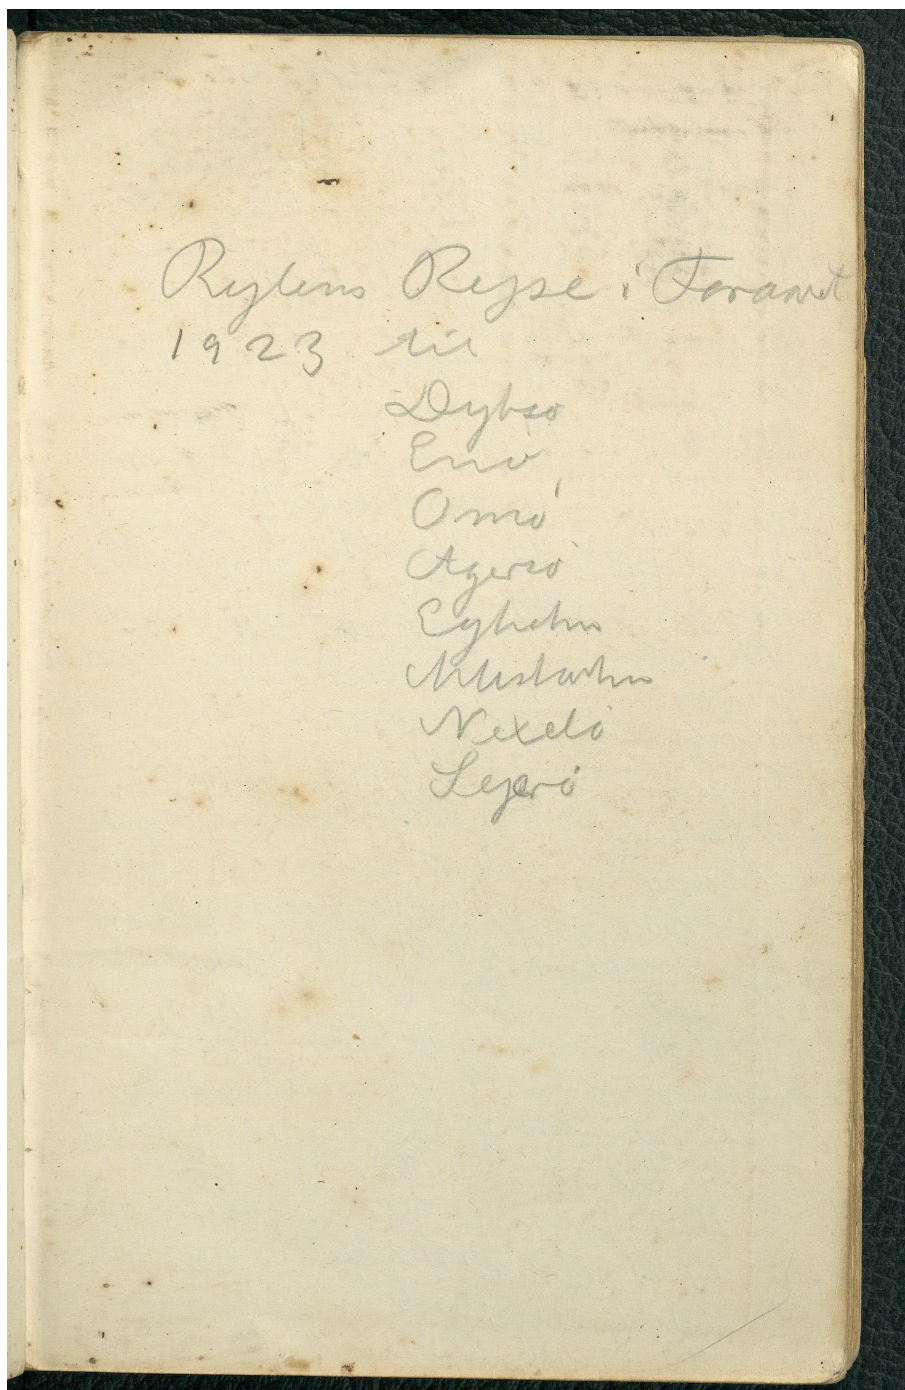 Rylens Rejse i Foraaret
1923 til
Dybsø
Enø
Omø
Agersø
Egholm
Musholm
Nexelø
Sejerø